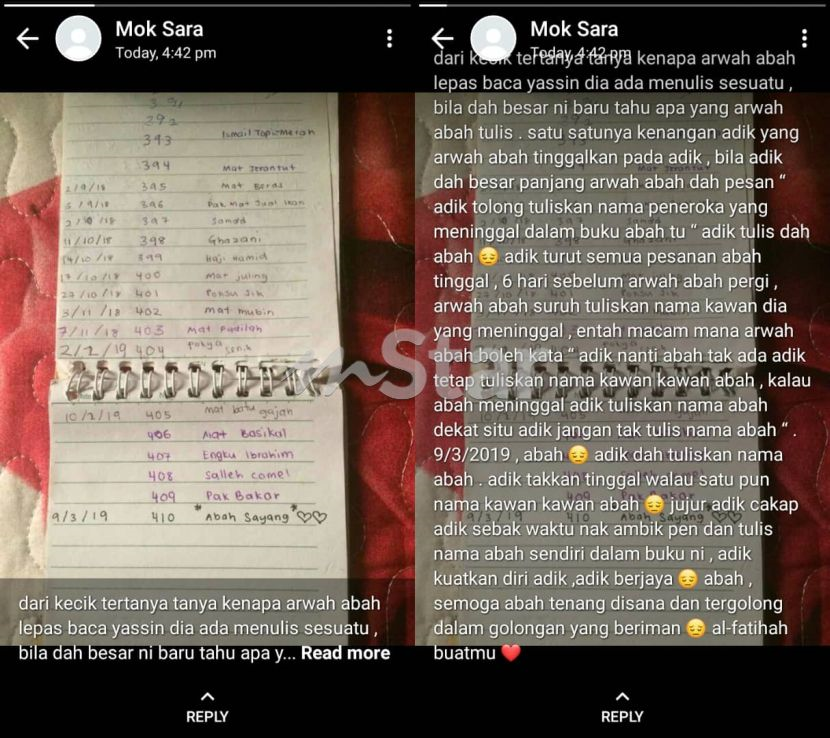 Mok Sara
Today, 4:42 pm
391
292
393 Ismail Topi Merah
394 Mat Jerantut
2/9/18 395 Mat Beras
5/9/18 396 Pak Mat Jual Ikan
2/10/18 397 Samad
11/10/18 398 Ghazani
14/10/18 399 Haji Hamid
17/10/18 400 Mat Juling
27/10/18 401 Pohsu Jik
3/11/18 402 Mat mubin
7/11/18 403 Mat Padilah
2/2/19 404 Pokya
10/2/19 405 mat batu gajah
406 Mat Basikal
407 Engku Ibrahim
408 Salleh comel
409 Pak Bakar
9/3/19 410 *Abah Sayang*♡♡
dari kecik tertanya tanya kenapa arwah abah
lepas baca yassin dia ada menulis sesuatu ,
bila dah besar ni baru tahu apa y... Read more
REPLY
inStar
Mok Sara
Today, 4:42 pm
dari kecik tertanya tanya kenapa arwah abah
lepas baca yassin dia ada menulis sesuatu ,
bila dah besar ni baru tahu apa yang arwah
abah tulis . satu satunya kenangan adik yang
arwah abah tinggalkan pada adik , bila adik
dah besar panjang arwah abah dah pesan “
adik tolong tuliskan nama peneroka yang
meninggal dalam buku abah tu “ adik tulis dah
abah 😔 adik turut semua pesanan abah
tinggal , 6 hari sebelum arwah abah pergi ,
arwah abah suruh tuliskan nama kawan dia
yang meninggal , entah macam mana arwah
abah boleh kata “ adik nanti abah tak ada adik
tetap tuliskan nama kawan kawan abah , kalau
abah meninggal adik tuliskan nama abah
dekat situ adik jangan tak tulis nama abah “ .
9/3/2019 , abah 😔 adik dah tuliskan nama
abah . adik takkan tinggal walau satu pun
nama kawan kawan abah 😔 jujur adik cakap
adik sebak waktu nak ambik pen dan tulis
nama abah sendiri dalam buku ni , adik
kuatkan diri adik ,adik berjaya 😔 abah ,
semoga abah tenang disana dan tergolong
dalam golongan yang beriman 😔 al-fatihah
buatmu ❤️
REPLY